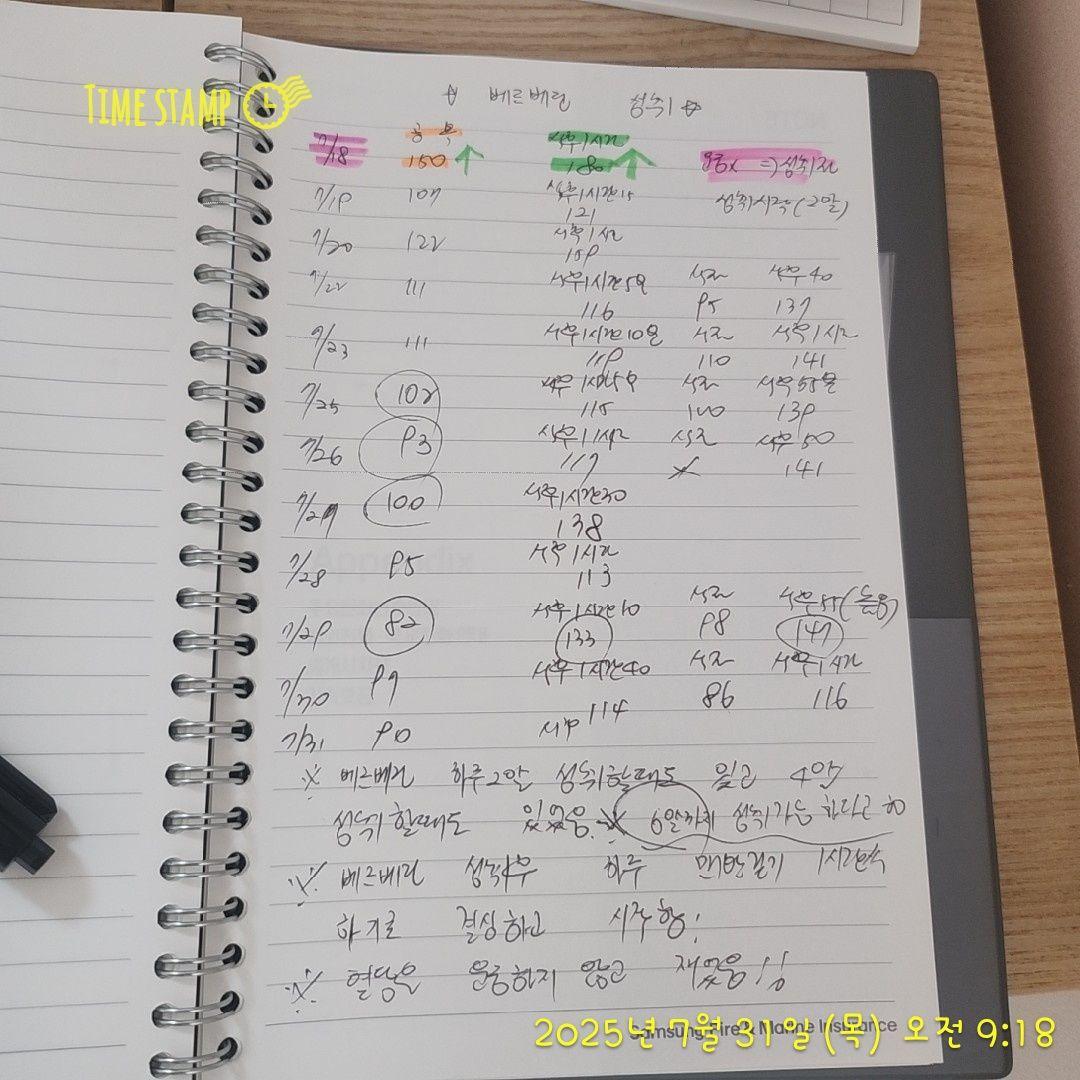 TIME STAMP
☆ 베르베린 섭취 ☆
7/18 공복 식후 1시간
150 ↑ 180 ↑ 운동x ⇒ 섭취전
7/19 107 식후 1시간 15 섭취시작 (2알)
121
7/20 122 식후 1시간
159
7/22 111 식후 1시간 5분 식전 식후 40
116 95 137
7/23 111 식후 1시간 10분 식전 식후 1시간
119 110 141
7/25 102 식후 1시간 5분 식전 식후 55분
115 100 139
7/26 93 식후 1시간 식전 식후 50
117 x 141
7/27 100 식후 1시간 30
138
7/28 95 식후 1시간
113
7/29 82 식후 1시간 10 식전 식후 55
133 98 147
7/30 97 식후 1시간 40 식전 식후 1시간
114 86 116
7/31 90 식후
※ 베르베린 하루 2알 섭취할때도 있고 4알
섭취할때도 있었음. ※ 6알까지 섭취가능 하다고 함
※ 베르베린 섭취후 하루 맨발걷기 1시간씩
하기로 결심하고 시작함!
※ 혈당은 운동하지 않고 재었음!!
Samsung Fire & Marine Insurance
2025년 7월 31일 (목) 오전 9:18